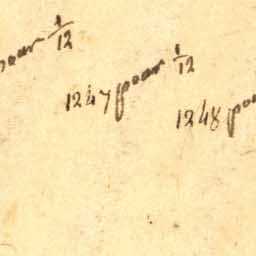 pour 1/12
1247 pour 1/12
1248